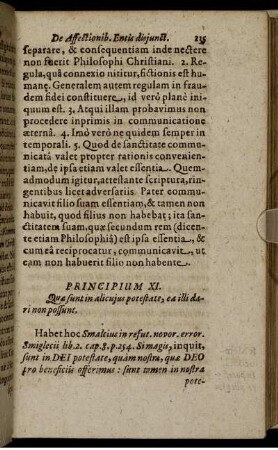 De Affectionib. Entis disjunct. 235
separare, & consequentiam inde nectere
non fuerit Philosophi Christiani. 2. Re-
gula, quâ connexio nititur, fictionis est hu-
manę. Generalem autem regulam in frau-
dem fidei constituere, id verò planè ini-
quum est. 3. Atqui illam probavimus non
procedere inprimis in communicatione
æternâ. 4. Imò verò ne quidem semper in
temporali. 5. Quod de sanctitate commu-
nicatâ valet propter rationis convenien-
tiam, de ipsa etiam valet essentia. Quem-
admodum igitur, attestante scriptura, rin-
gentibus licet adversariis Pater commu-
nicavit filio suam essentiam, & tamen non
habuit, quod filius non habebat; ita san-
ctitatem suam, quæ secundum rem (dicen-
te etiam Philosophiâ) est ipsa essentia, &
cum eâ reciprocatur, communicavit, ut
eam non habuerit filio non habente.
PRINCIPIUM XI.
Quæ sunt in alicujus potestate, ea illi da-
ri non possunt.
Habet hoc Smalcius in refut. novor. error.
Smiglecii lib. 2. cap. 8. p. 254. Si magis, inquit,
sunt in DEI potestate, quàm nostra, quæ DEO
pro beneficiis offerimus: sunt tamen in nostra
pote-